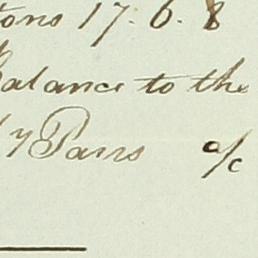 tons 17. 6. 8
Balance to the
Parrs a/c